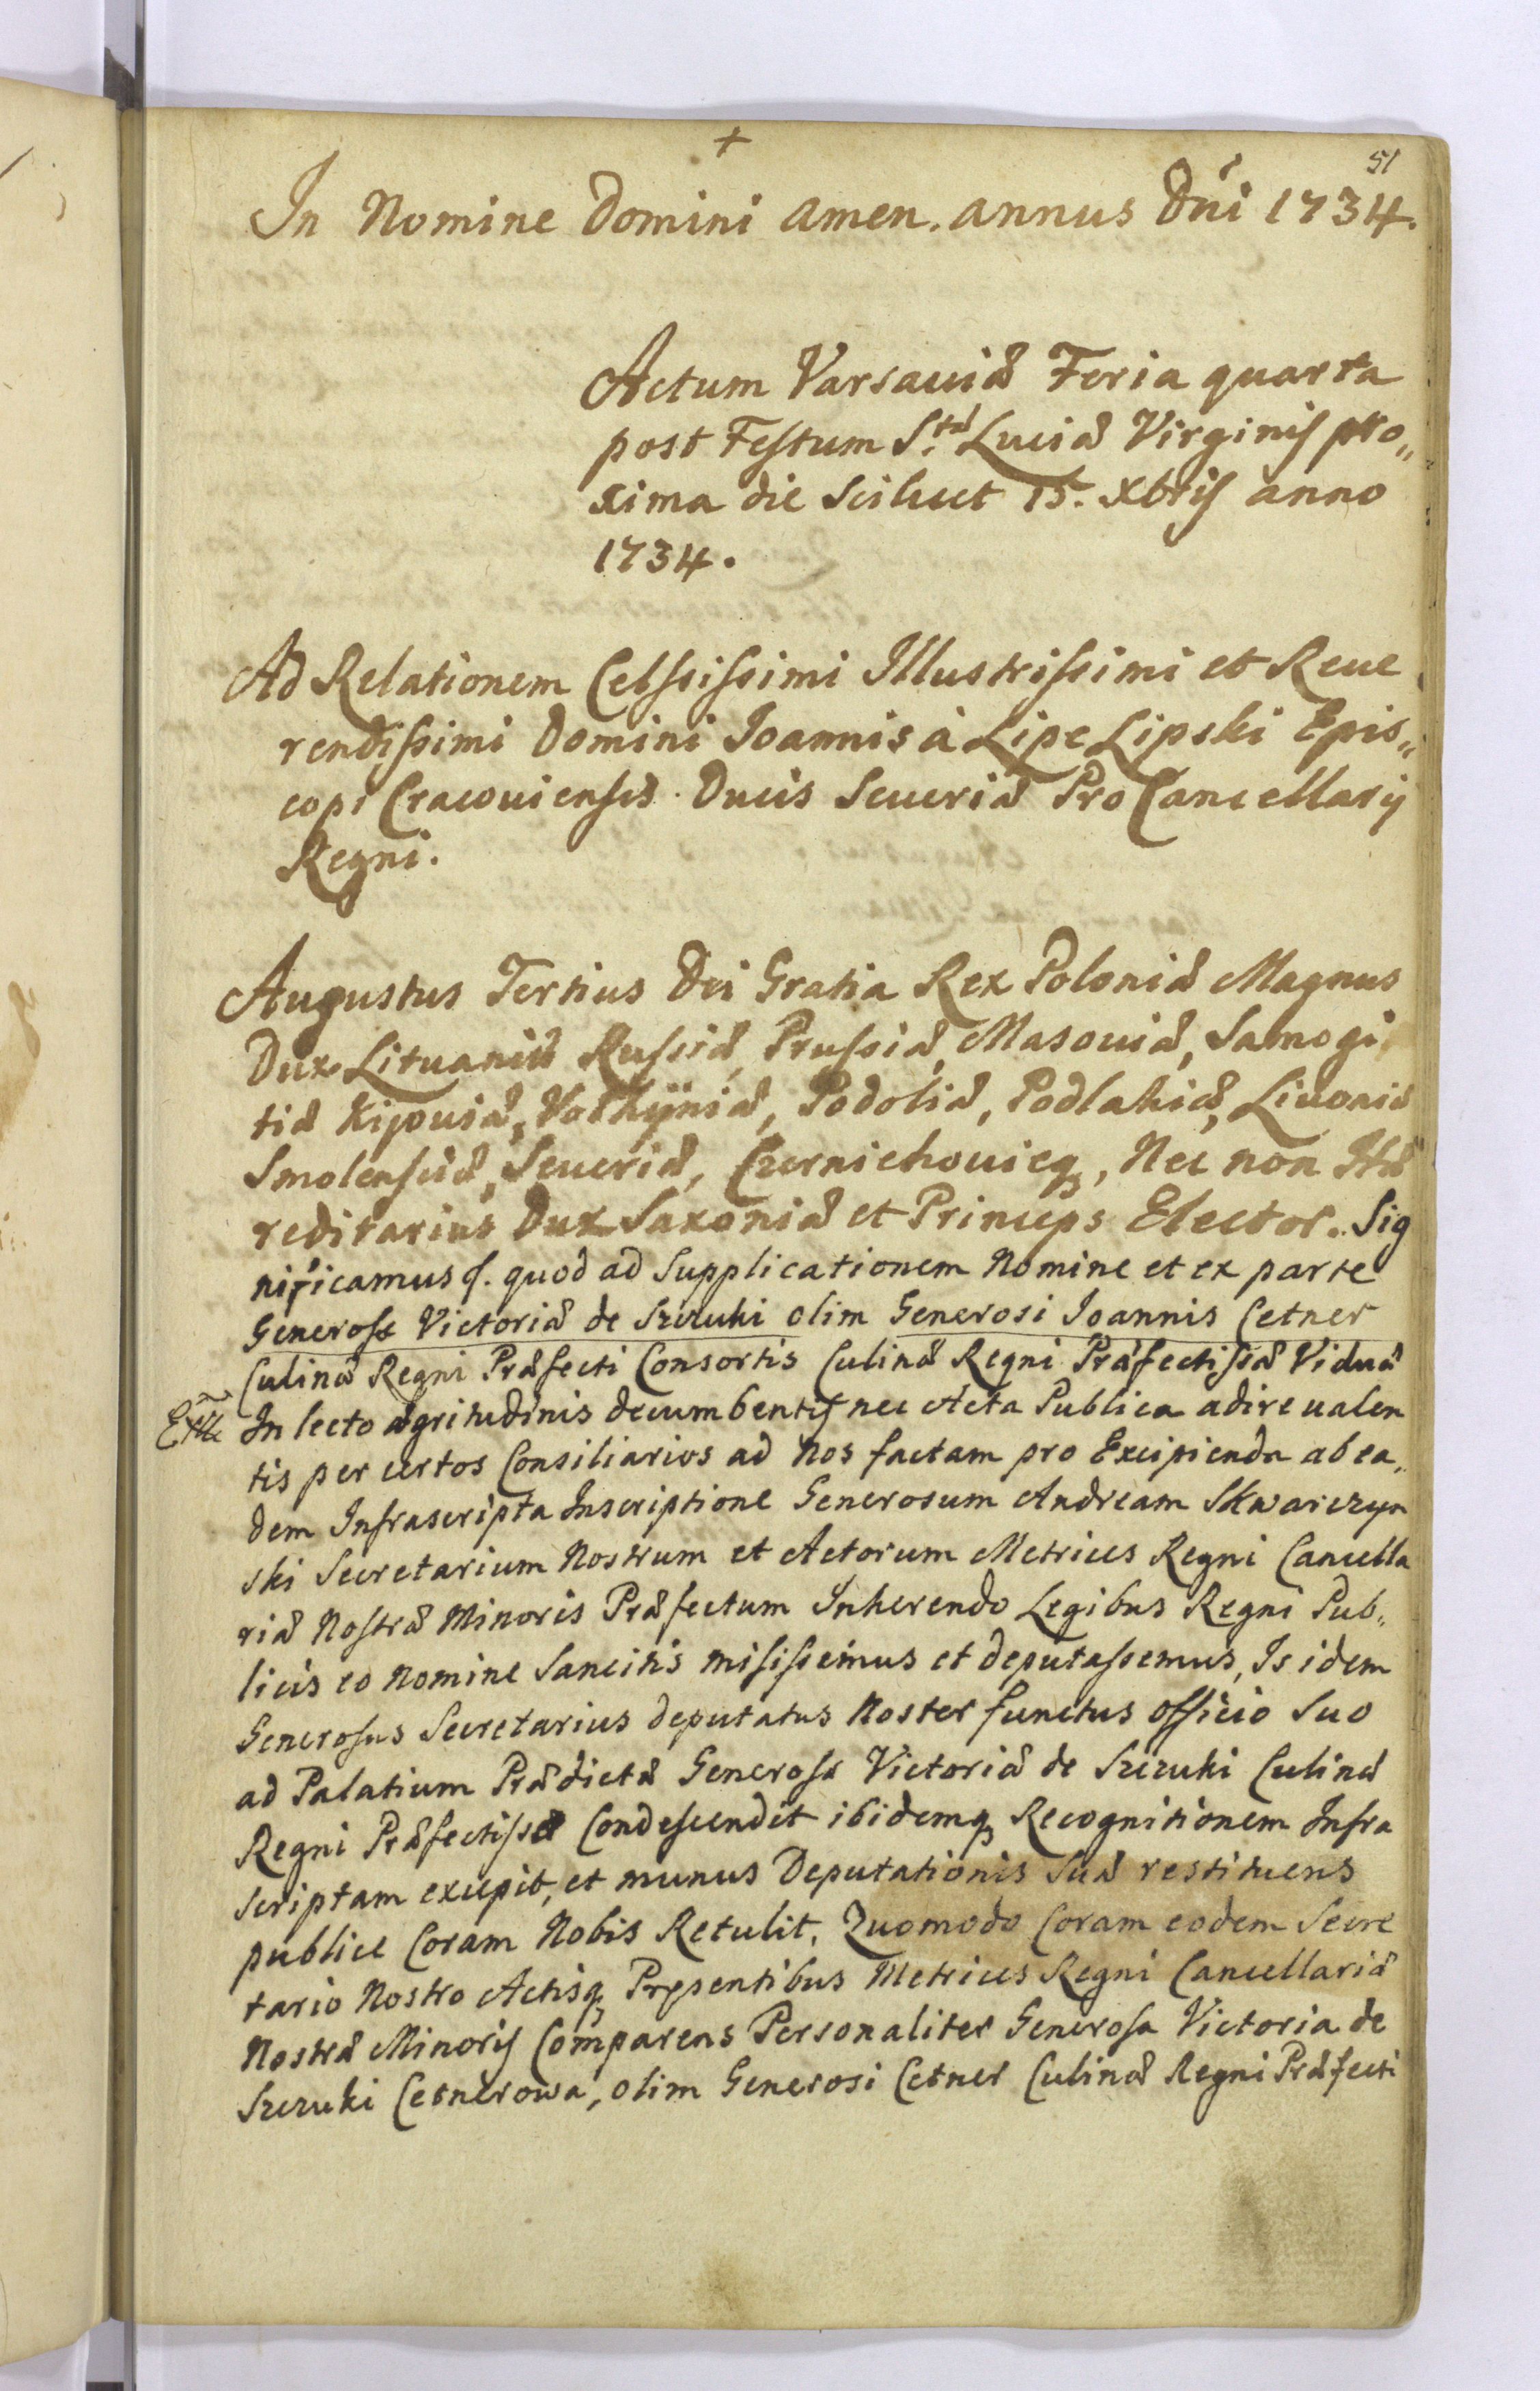 +
51
In Nomine Domini amen. annus Dni 1734.
Actum Varsaviæ Feria quarta
post Festum S.tæ Luciæ Virginis pro„
xima die Scilicet 15. Xbris anno
1734.
Ad Relationem Celssissimi Illustrissimi et Reue
rendissimi Domini Joannis à Lipe Lipski Epis„
copi Cracouiensis. Ducis Seueriæ ProCancellarij
Regni.
Augustus Tertius Dei Gratia Rex Poloniæ Magnus
Dux Lituaniæ Russiæ, Prussiæ, Masouiæ, Samogi
tiæ Kijouiæ, Volhÿniæ, Podoliæ, Podlahiæ, Liuoniæ
Smolensciæ, Seueriæ, Czerniechouieq, Nec non Hæ
reditarius Dux Saxoniæ et Princeps Elector. Sig
nificamus &. quod ad Supplicationem Nomine et ex parte
Generosæ Victoriæ de Szczuki olim Generosi Ioannis Cetner
Culinæ Regni Præfecti Consortis Culinæ Regni Præfectissæ Viduæ
In lecto ægritudinis decumbentis nec Acta Publica adire ualen
tis per certos Consiliarios ad Nos factam pro Excipienda ab ea„
dem Infrascripta Inscriptione Generosum Andream Skwarczyn
ski Secretarium Nostrum et Actorum Metrices Regni Cancella
riæ Nostræ Minoris Præfectum Inherendo Legibus Regni Pub„
licis eo Nomine Sancitis misissemus et deputassemus, Is idem
Generosus Secretarius deputatus Noster functus officio Suo
ad Palatium Prædictæ Generosæ Victoriæ de Szczuki Culinæ
Regni Præfectissæ Condescendit ibidemq Recognitionem Infra
scriptam excepit, et munus Deputationis Suæ restituens
publice Coram Nobis Retulit. Quomodo Coram eodem Secre
tario Nostro Actisq Pręsentibus Metrices Regni Cancellariæ
Nostræ Minoris Comparens Personaliter Generosa Victoria de
Szczuki Cetnerowa, olim Generosi Cetner Culinæ Regni Præfecti